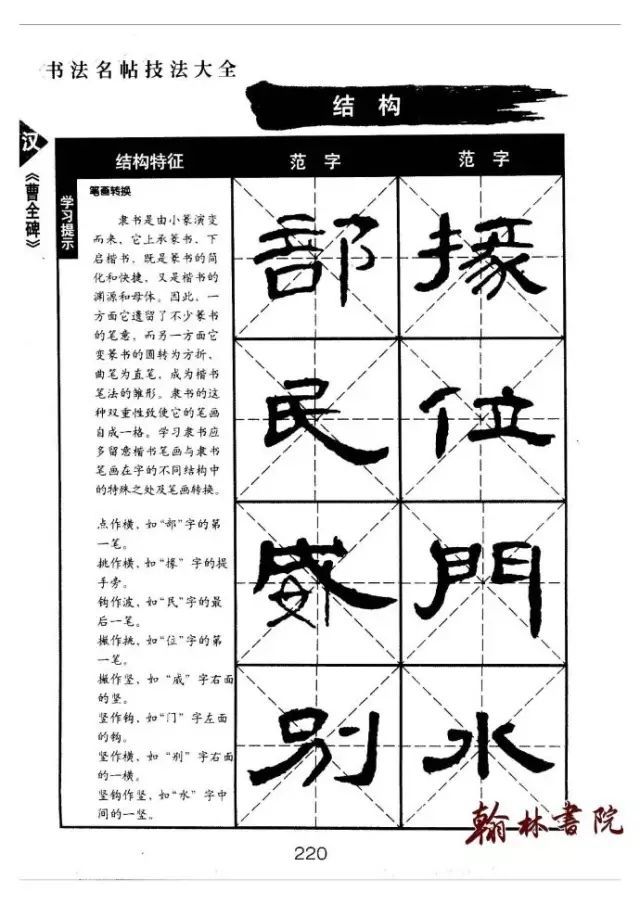 书法名帖技法大全
结 构
汉
《曹全碑》
结构特征
范 字
范 字
学习提示
笔画转换
隶书是由小篆演变
而来，它上承篆书，下
启楷书，既是篆书的简
化和快捷，又是楷书的
渊源和母体。因此，一
方面它遗留了不少篆书
的笔意，而另一方面它
变篆书的圆转为方折，
曲笔为直笔，成为楷书
笔法的雏形。隶书的这
种双重性致使它的笔画
自成一格。学习隶书应
多留意楷书笔画与隶书
笔画在字的不同结构中
的特殊之处及笔画转换。
点作横，如“部”字的第
一笔。
挑作横，如“掾”字的提
手旁。
钩作波，如“民”字的最
后一笔。
撇作挑，如“位”字的第
一笔。
撇作竖，如“威”字右面
的竖。
竖作钩，如“门”字左面
的钩。
竖作横，如“别”字右面
的一横。
竖钩作竖，如“水”字中
间的一竖。
部 掾
民 位
威 門
别 水
翰林書院
220